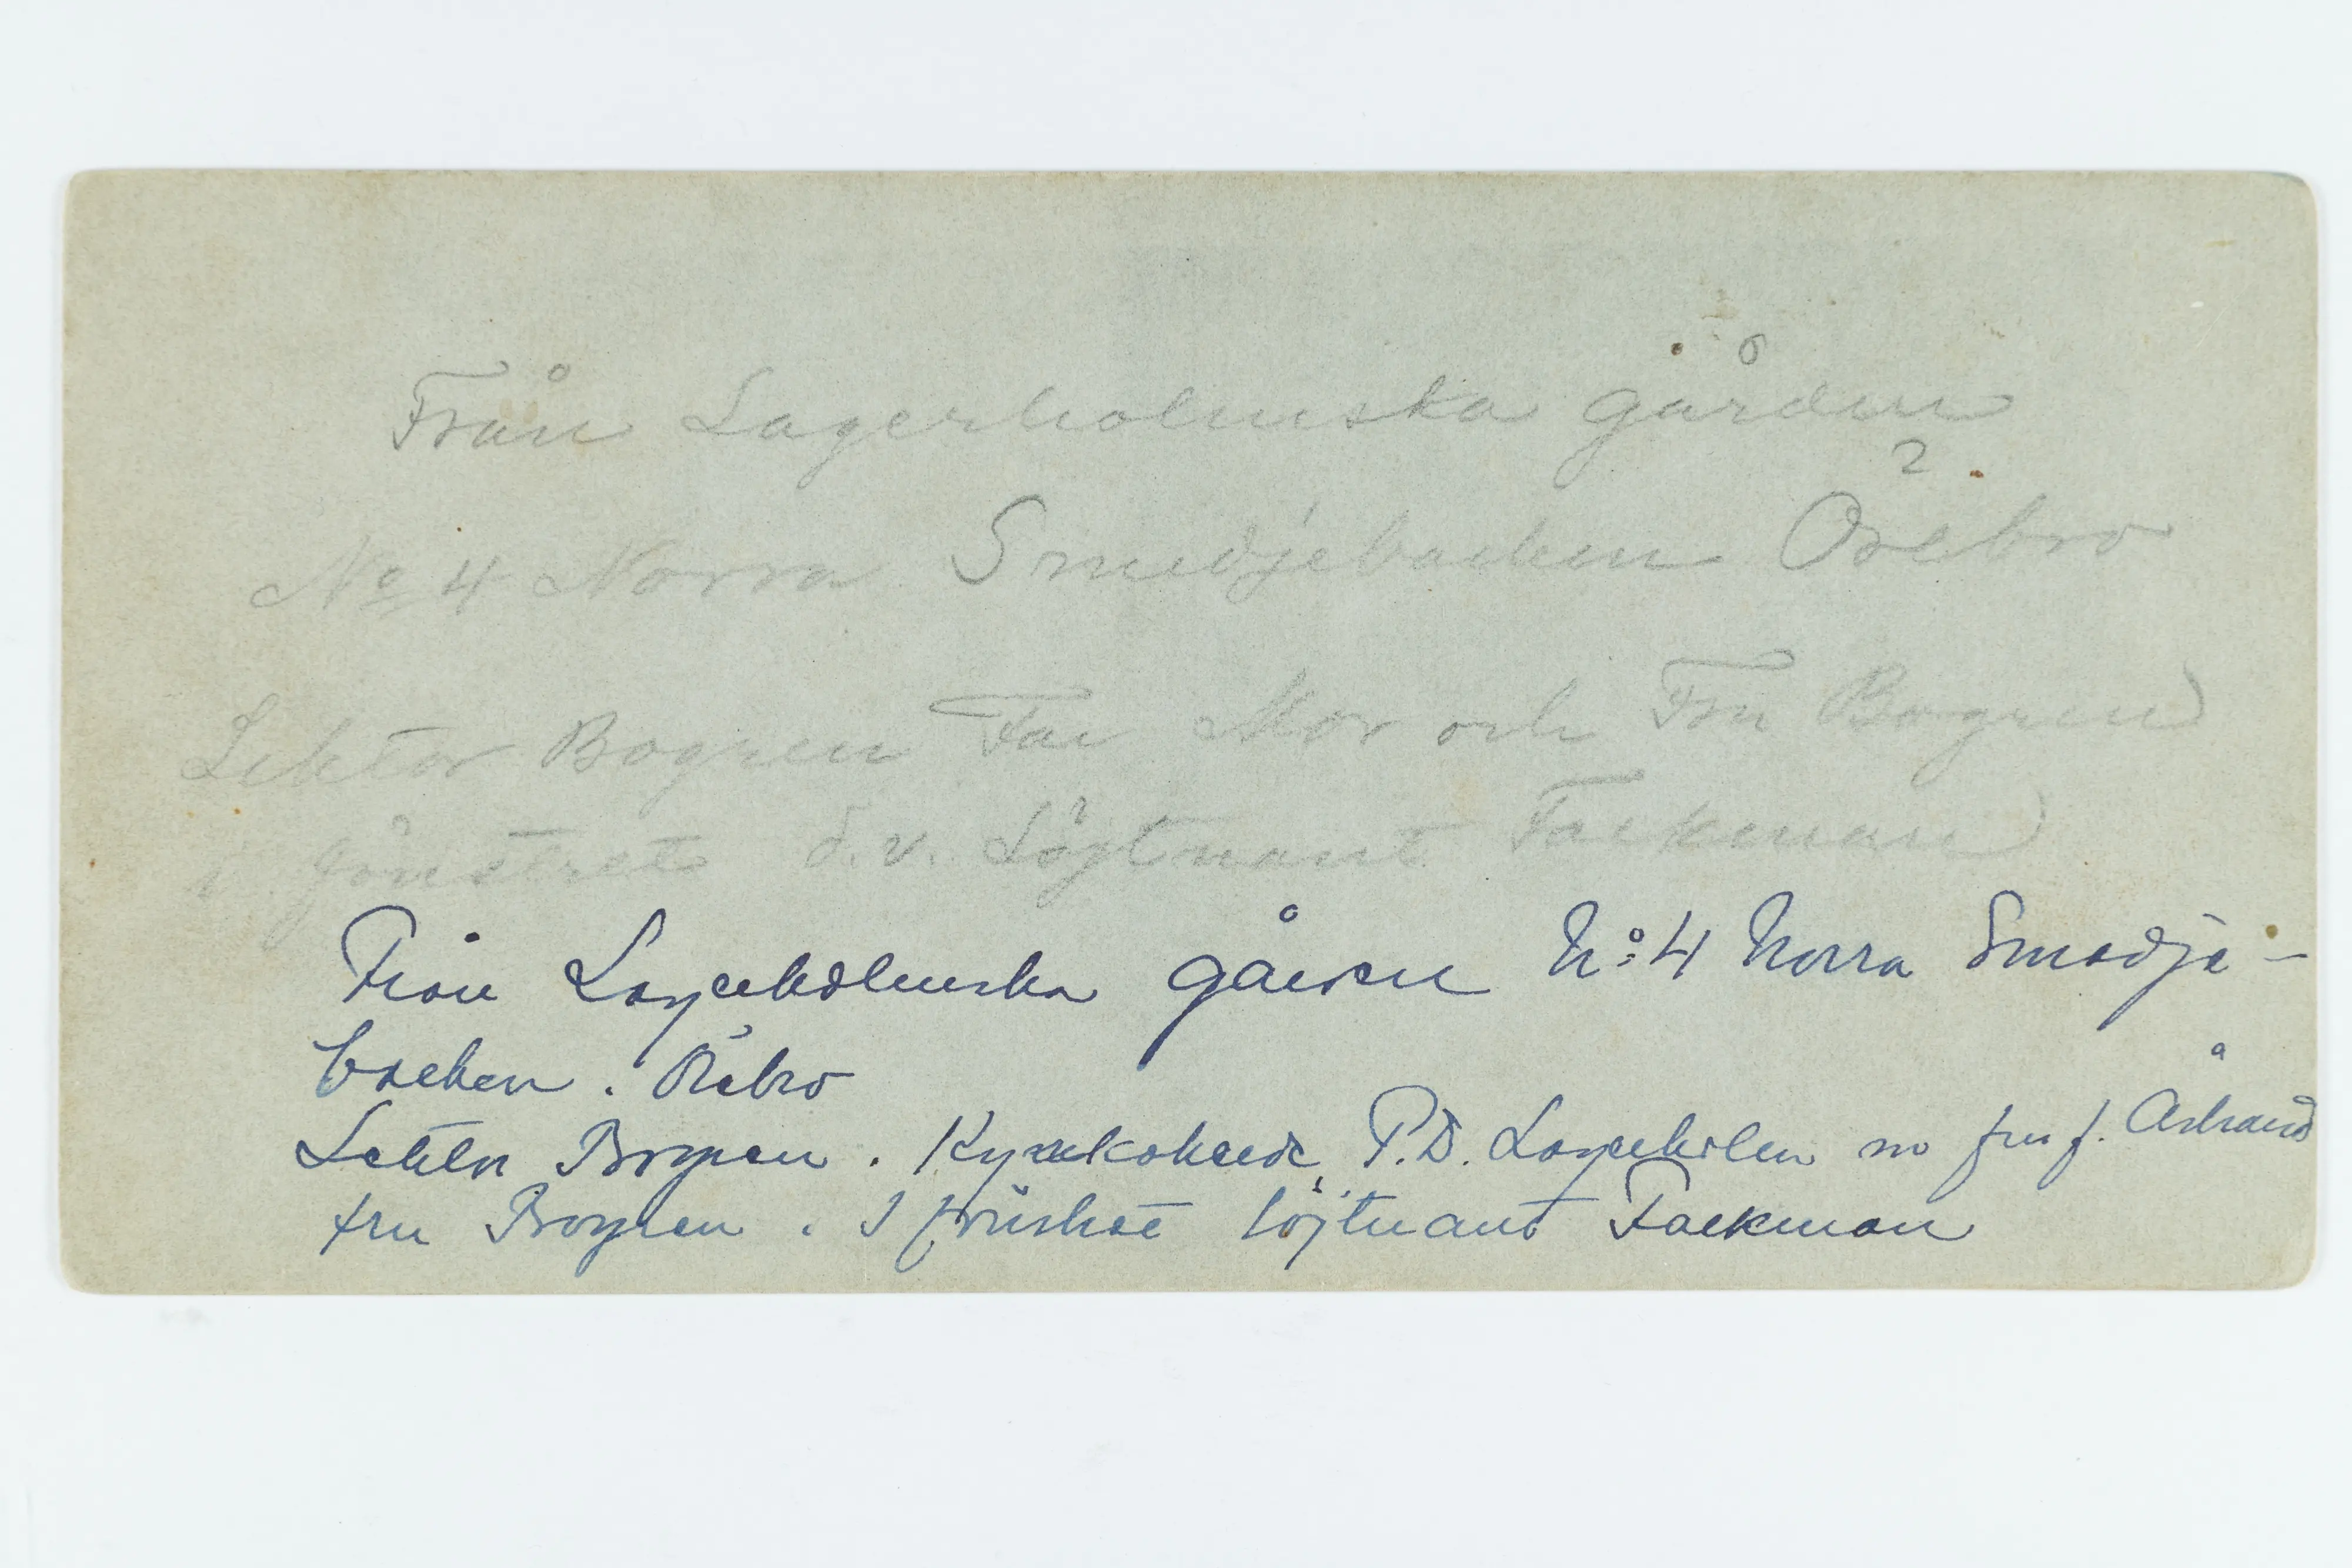 Från Lagerholmska gården
No 4 Norra Smedjebacken Örebro
Lektor Bogren Far Mor och Fru Bogren
i fönstret d.v. Löjtnant Fackman
Från Lagerholmska gården N:o 4 Norra Smedje-
backen. Örebro
Lektor Bogren. Kyrkoherde P.D. Lagerholm o fru f. Åstrand
fru Bogren. I fönstret löjtnant Fackman